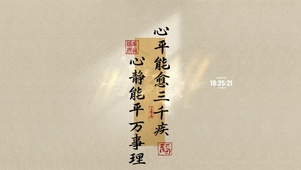 心平能愈三千疾
心静能平万事理
18:35:21